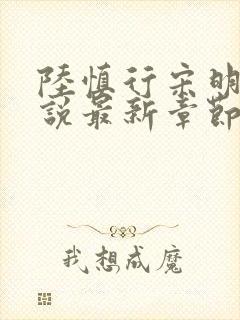 陸慎行宋明
說最新章節
我想成魔